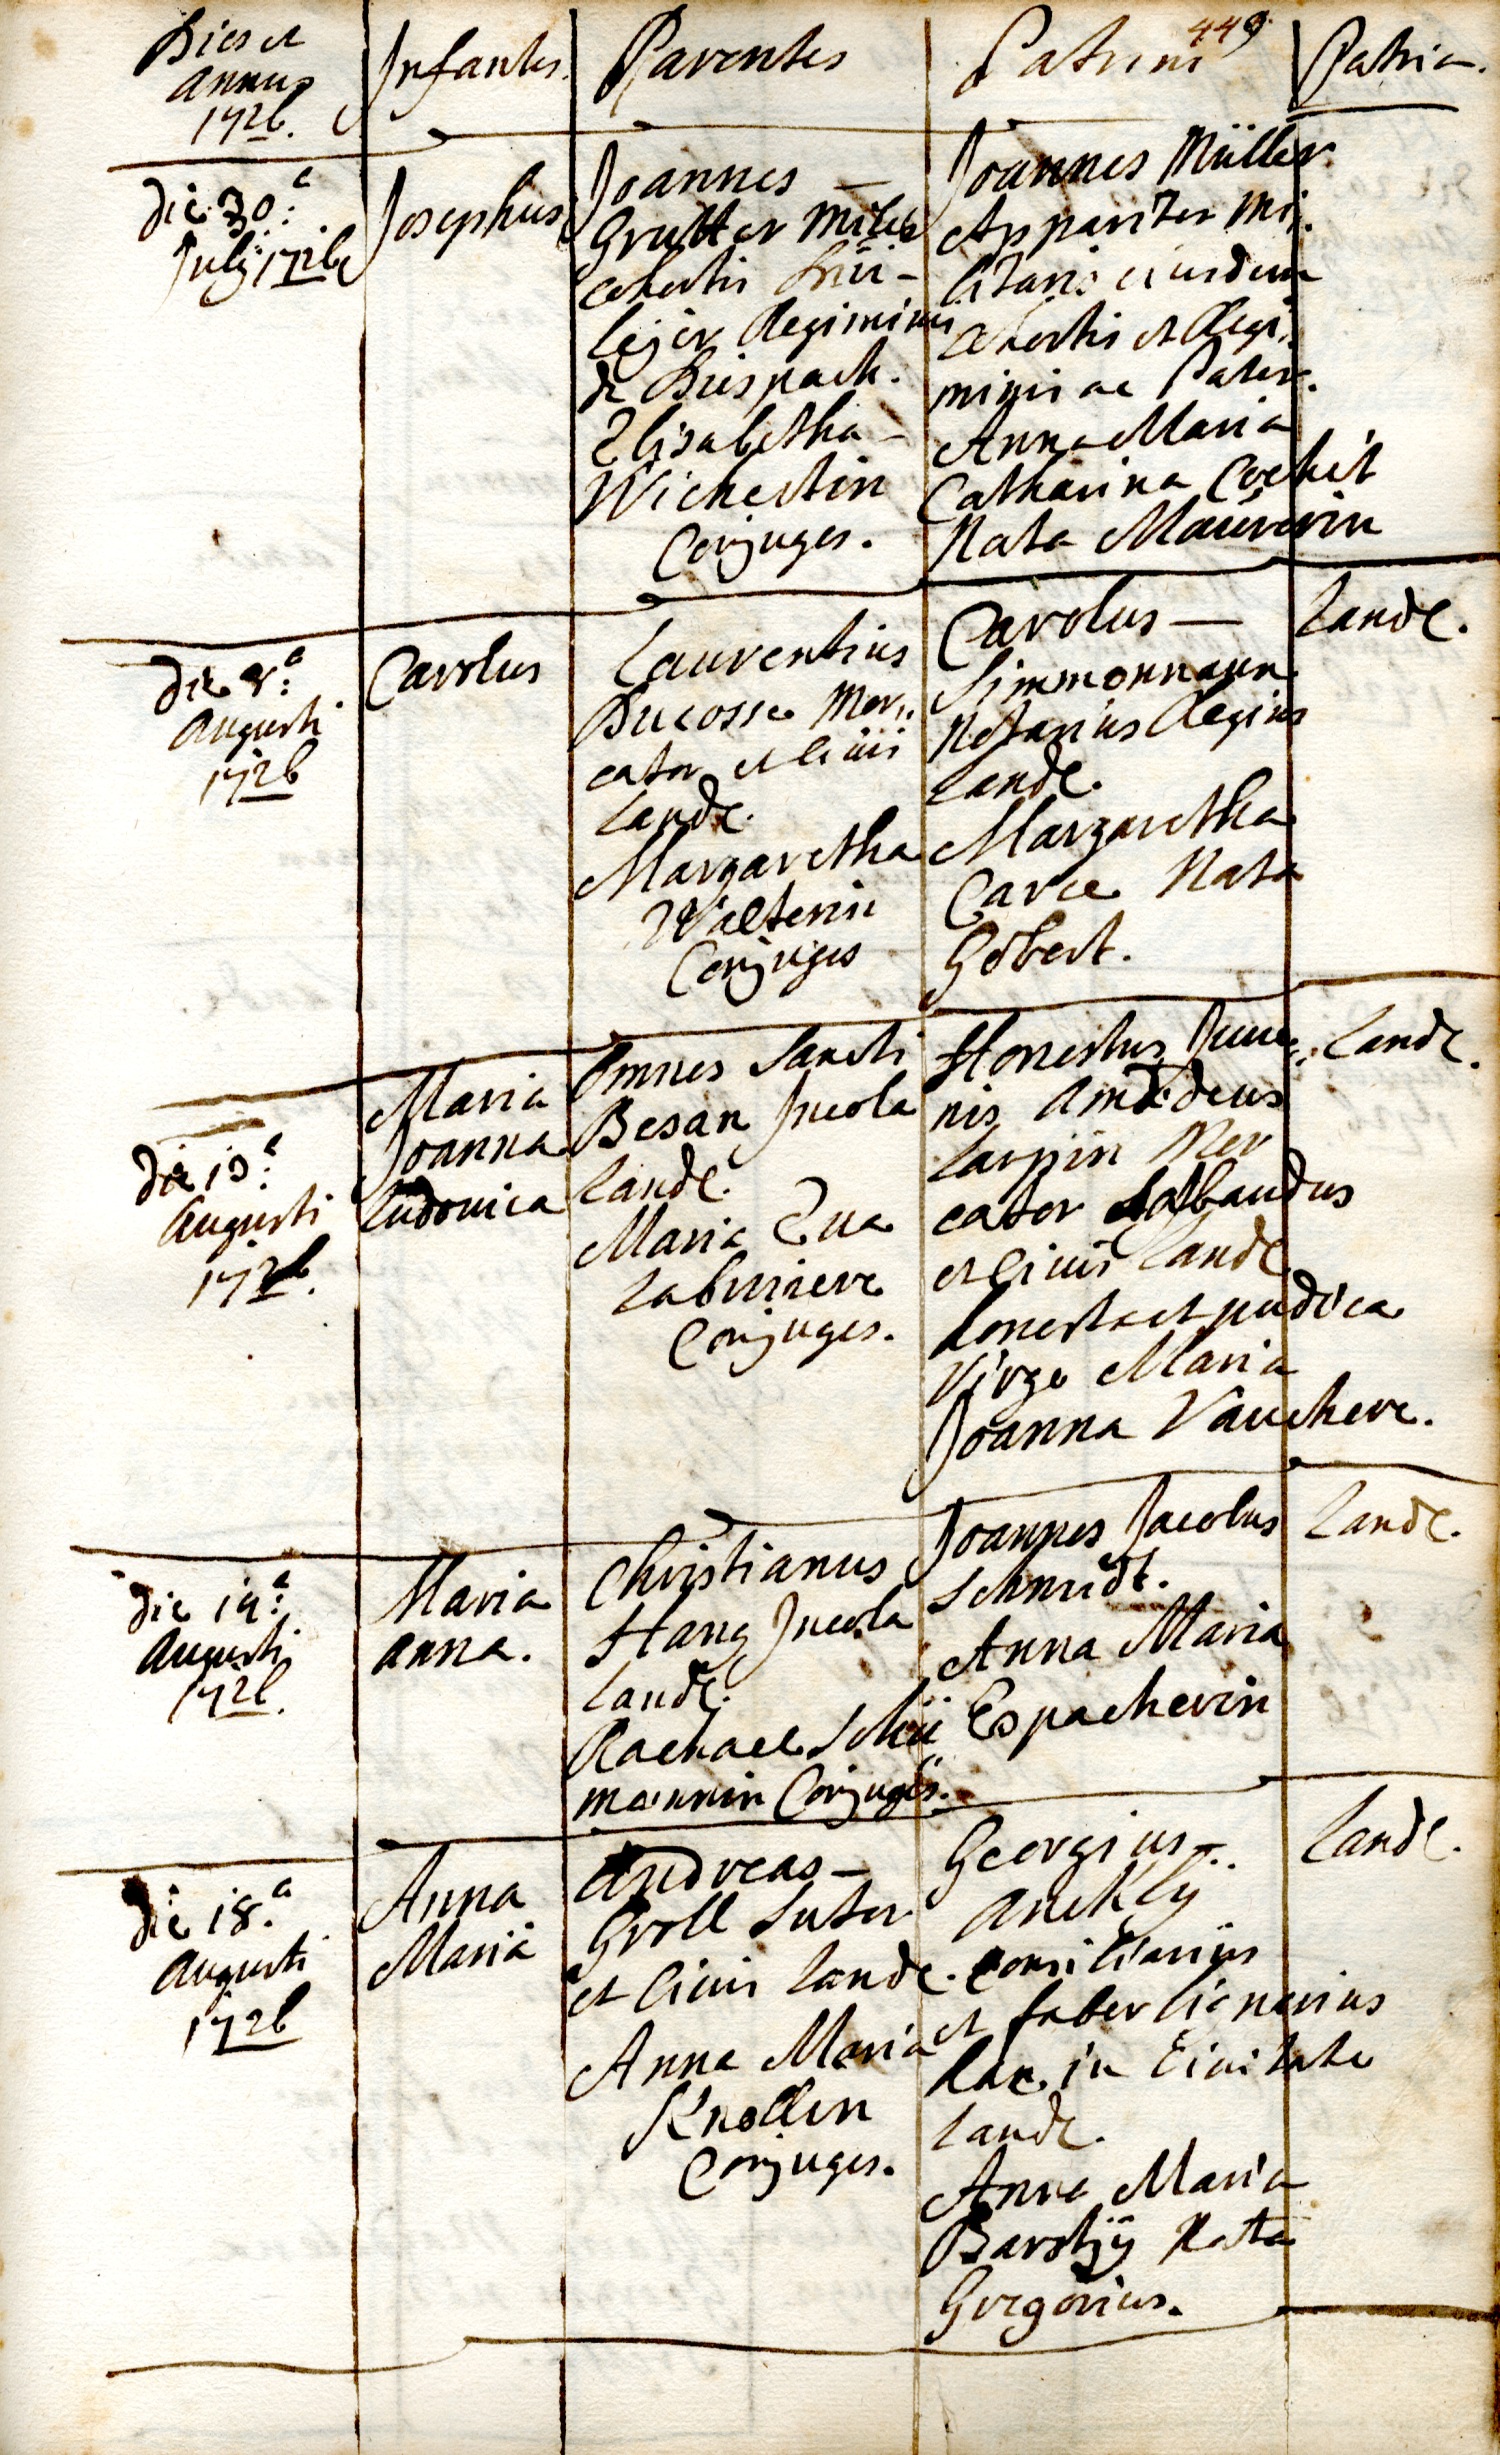 449
Dies et
annus
1726.
Infantes.
Parentes
Patrini
Patria.
die 30.a
July 1726
Josephus
Joannes —
Grutter Miles
cohortis
Regiminis
de Diespach.
Elisabetha —
Wichertin
Conjuges.
Joannes Müller
Appariter Mi,
litaris eiusdem
Cohortis et Regi,
minis ac Pater.
Anna Maria
Catharina Cochet
Nata Maürerin
die 9.a
Augusti
1726
Carolus
Laurentius
Ducosse Mer,,
cator et Civis
Landℓ.
Margaretha
Walterin
Conjuges
Carolus —
Simmonnaire
Notarius Regius
Landℓ.
Margaretha
Carce Nata
Gobert.
Landℓ.
die 13.a
Augusti
1726.
Maria
Joanna
Ludovica
Omnes Sancti
Besan Incola
Landℓ.
Maria Eva
Labruiere
Conjuges.
Honestus Juve,,
nis Amedeus
Larpin Mer
cator Sabaudus
et Civis Landℓ
honesta et pudica
Virgo Maria
Joanna Vauchere.
Landℓ.
die 14.a
Augusti
1726.
Maria
Anna.
Christianus
Hang Incola
Landℓ.
Rachael Schü
mannin Conjuges.
Joannes Jacobus
Schmidt.
Anna Maria
Espacherin
Landℓ.
die 18.a
Augusti
1726
Anna
Maria
Andreas —
Groll Sutor
et Civis Landℓ.
Anna Maria
Knollin
Conjuges.
Georgius —
Anckly
Consiliarius
et faber lignarius
hac in Civitate
Landℓ.
Anna Maria
Barsty Nata
Gregorius.
Landℓ.